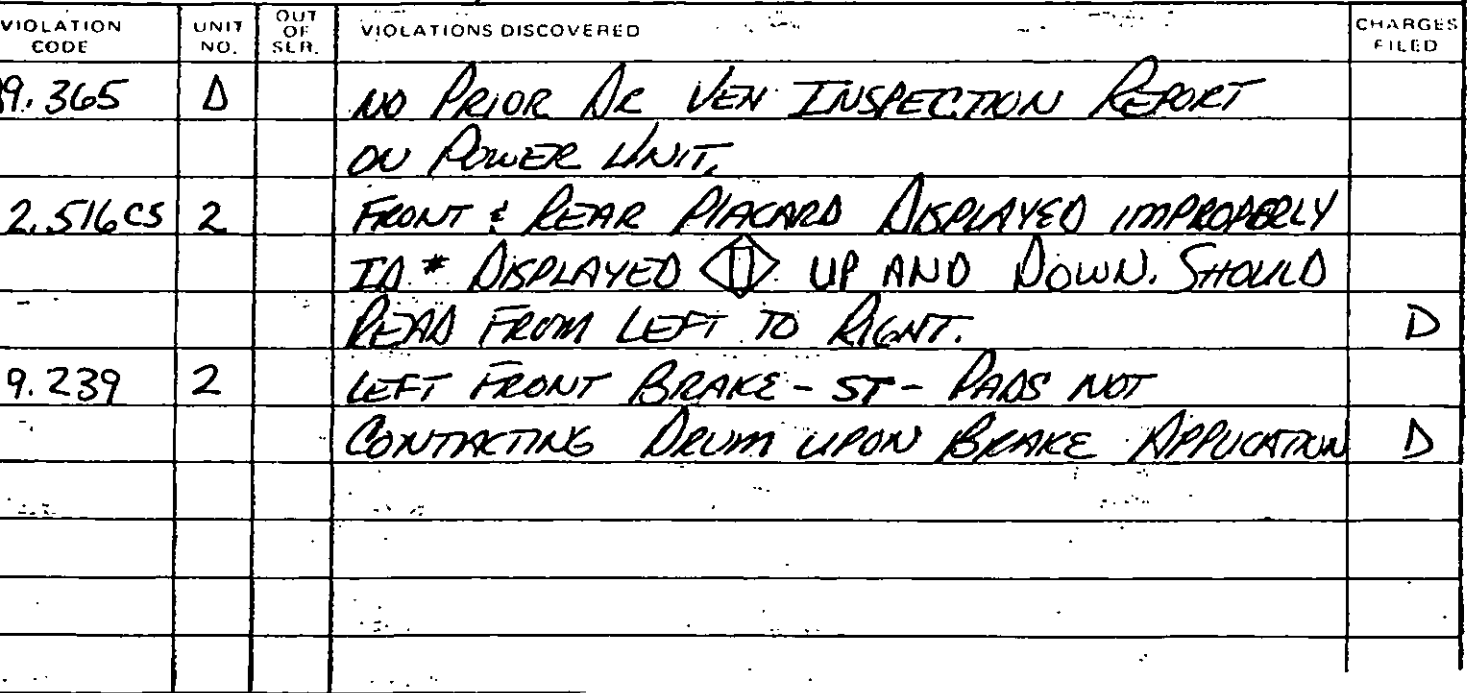 VIOLATION CODE UNIT NO. OUT OF SER. VIOLATIONS DISCOVERED CHARGES FILED
9.365 D NO PRIOR DR VEH INSPECTION REPORT
ON POWER UNIT.
2.516CS 2 FRONT & REAR PLACARD DISPLAYED IMPROPERLY
ID # DISPLAYED UP AND DOWN. SHOULD
READ FROM LEFT TO RIGHT. D
9.239 2 LEFT FRONT BRAKE - ST - PADS NOT
CONTACTING DRUM UPON BRAKE APPLICATION D